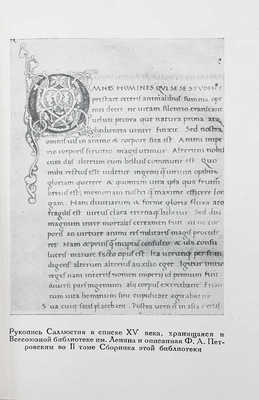 OMNES HOMINES QUI SESE STVDENT
prestare ceteris animalibus summa ope
niti decet ne uitam silentio
ueluti pecora que natura prona atq;
finxit. Sed nostra
omnis uis in animo & corpore sita est. Animi impe
rio corporis seruitio magis utimur. Alterum nobis
cum diis alterum cum beluis commune est. Quo
mihi rectius esse uidetur ingenii quam uirium opibus
gloriam querere & quoniam uita ipsa qua
breuis est memoriam nostri quam maxime longam
Nam diuitiarum & forme gloria fluxa atq;
fragilis est uirtus clara eternaq; habetur. Sed diu
magnum inter mortales certamen fuit
an uirtute animi res militaris magis procede
ret. Nam & prius quam incipias consulto & ubi consulu
eris mature facto opus est. Ita utrumq; per se
indigens alterum alterius auxilio eget. Igitur initio
reges nam in terris nomen imperii id primum fuit
diuersi pars ingenium alii corpus exercebant. Etiam
uita hominum sine cupiditate agitabatur
Sua cuiq; satis placebant.
Рукопись Саллюстия в списке XV века, хранящаяся в
Всесоюзной библиотеке им. Ленина и описанная Ф. А. Пет-
ровским во II томе Сборника этой библиотеки